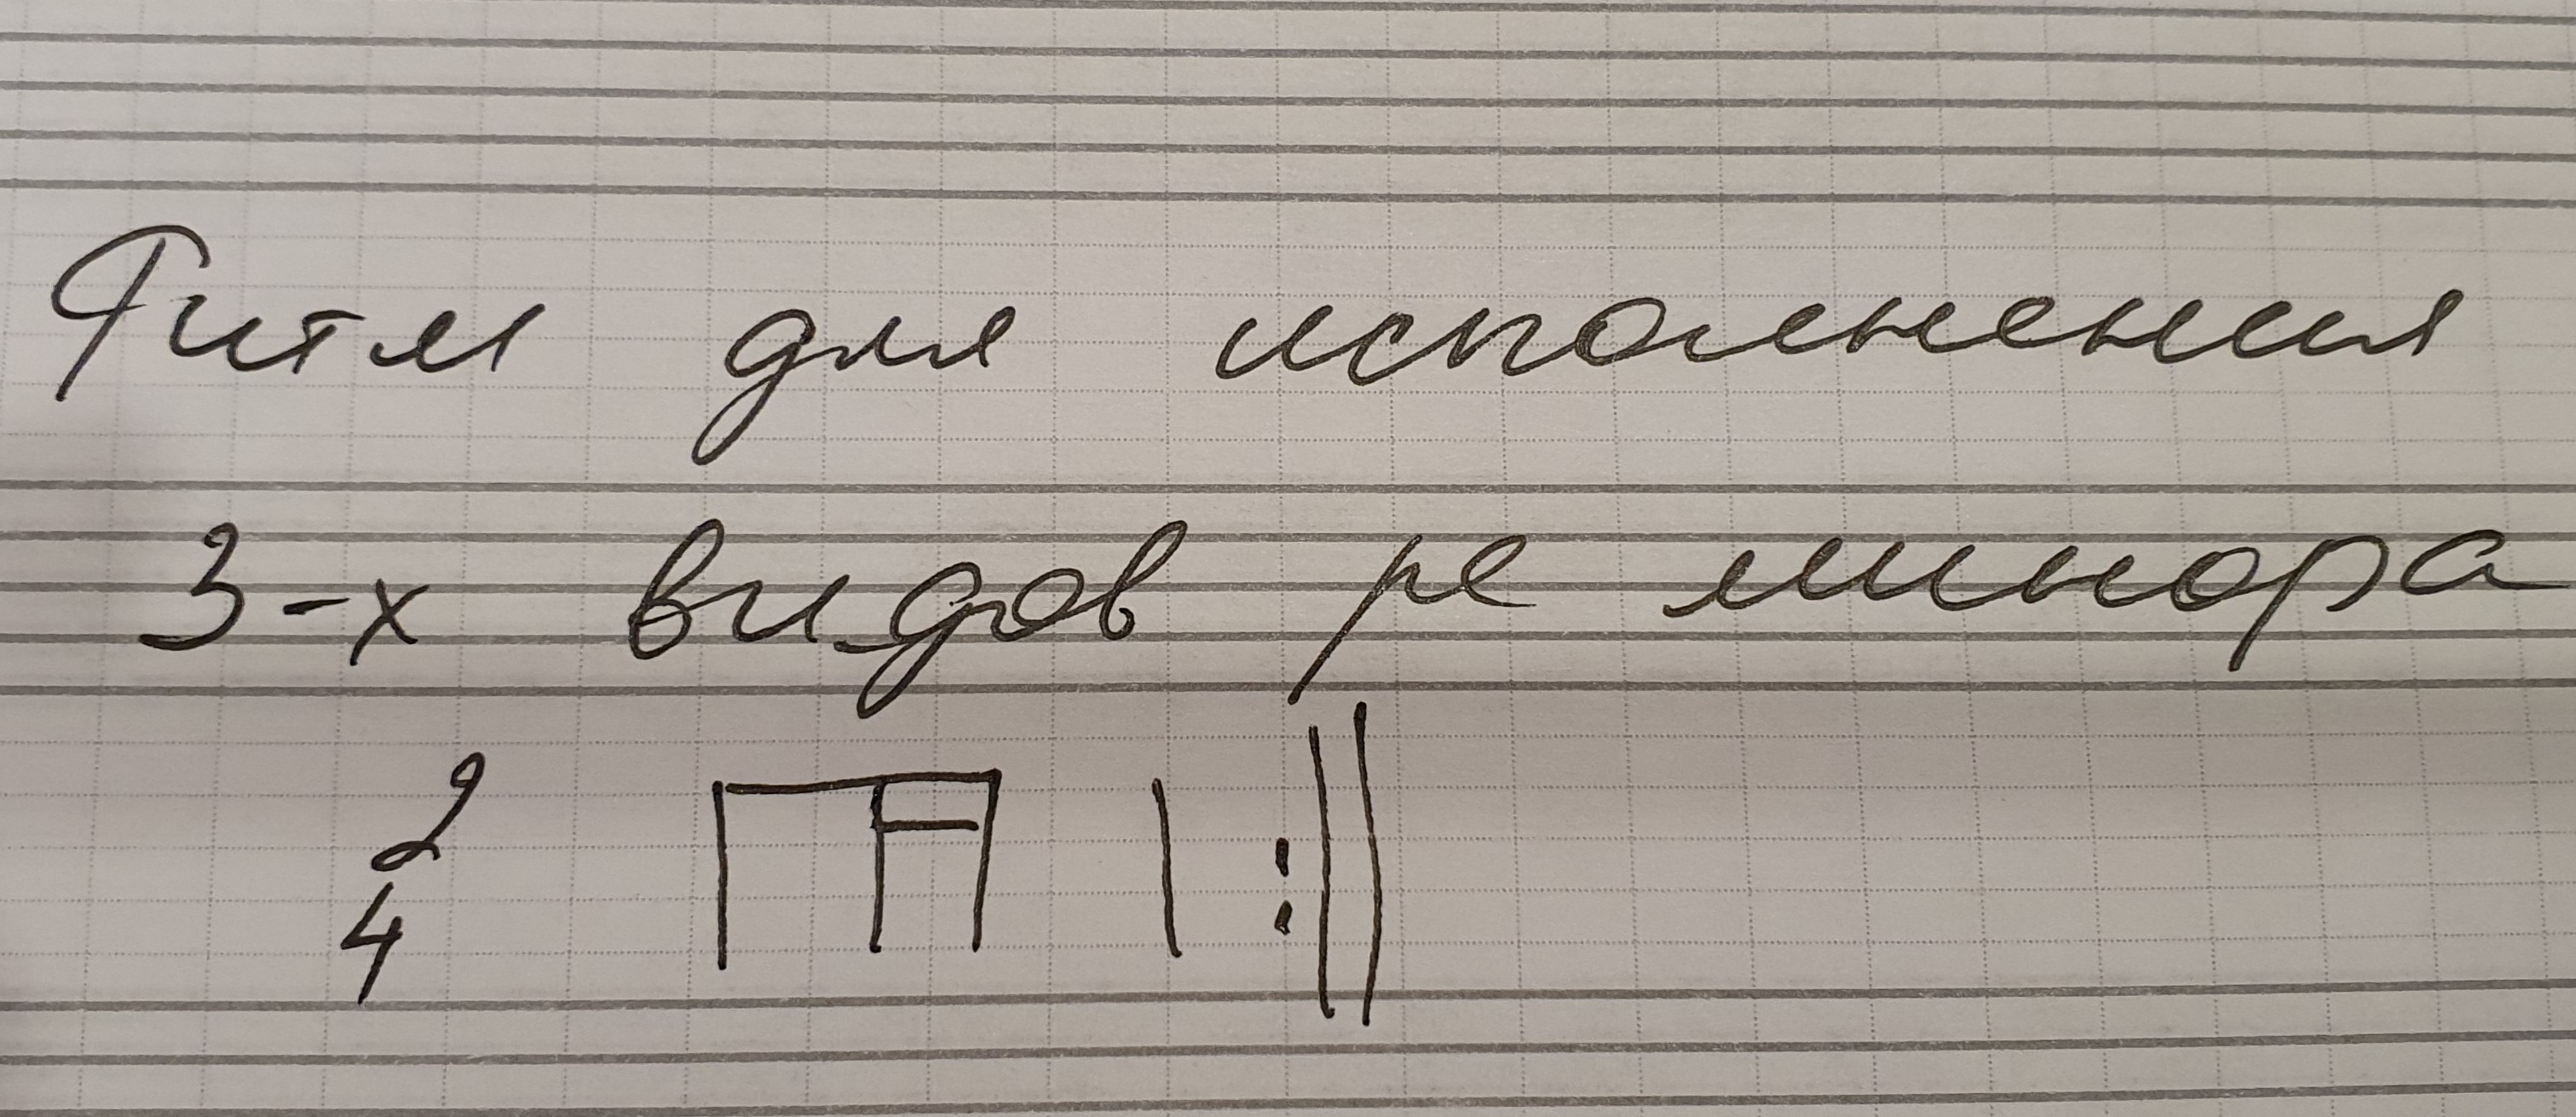 Ритм для исполнения
3-х видов ре минора
2
4